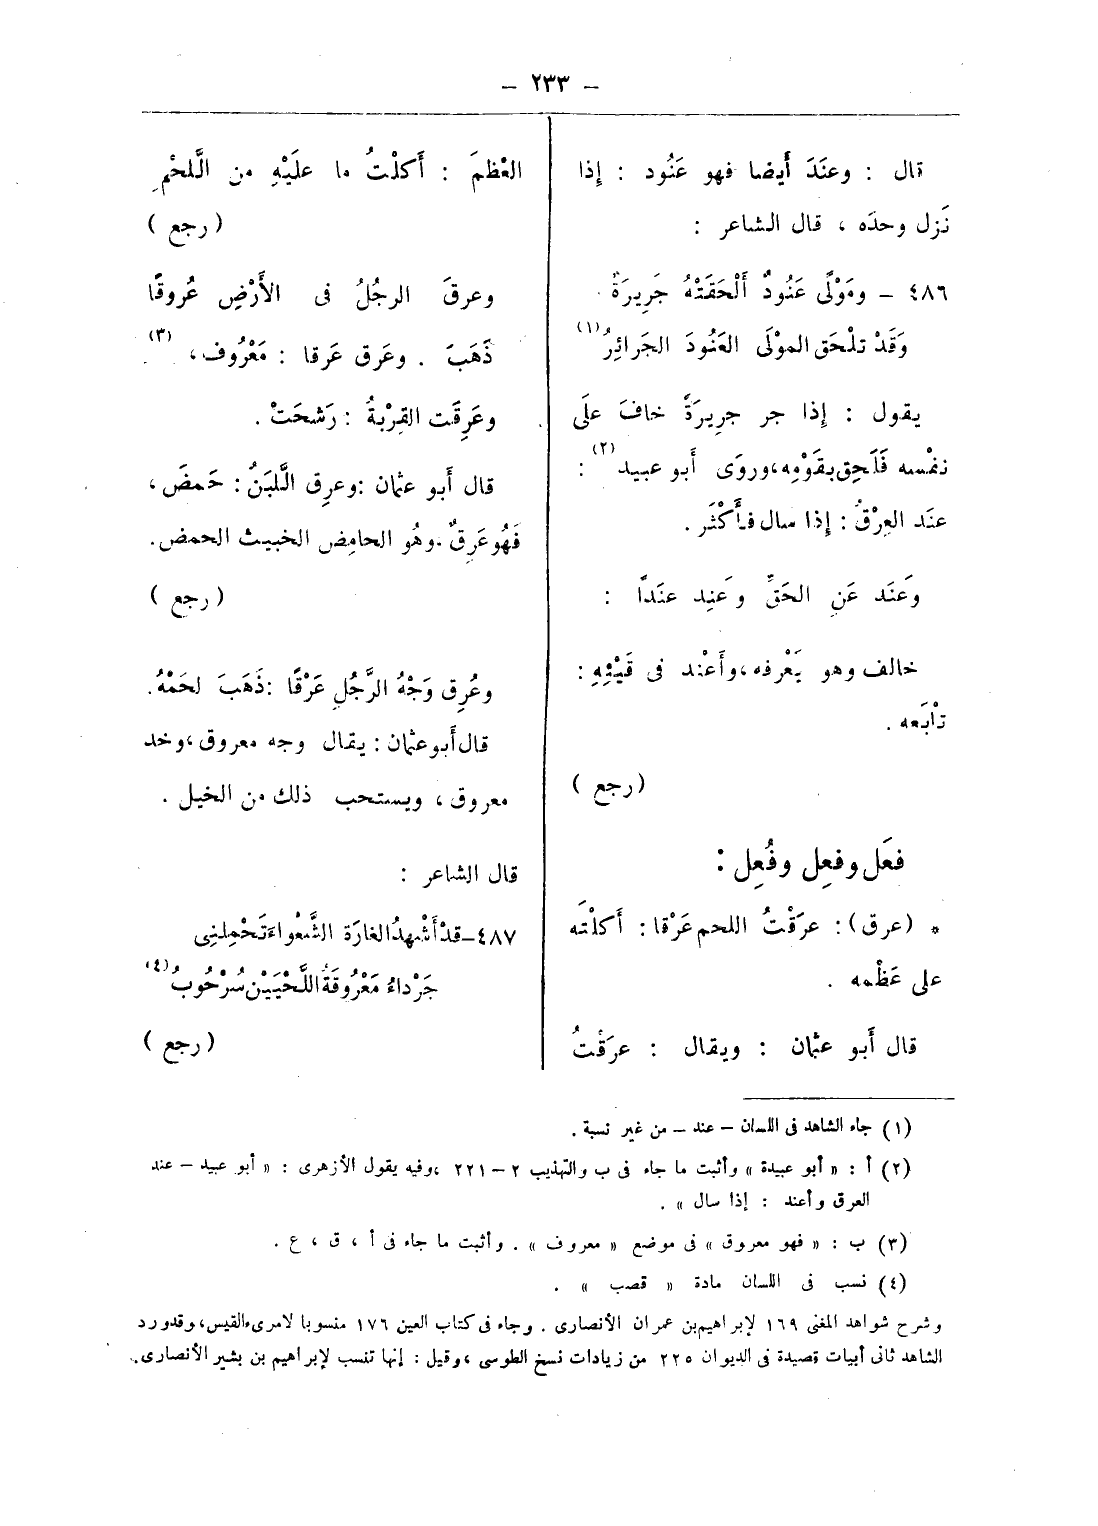 – ٢٣٣ –
قال : وعنَدَ أَيضا فهو عَنُود : إِذا
نَزل وحدَه ، قال الشاعر :
٤٨٦ – ومَوْلًى عَنُودٌ أَلْحَقَتْهُ جَرِيرَةٌ
وَقَدْ تلْحَق الموْلَى العَنُودَ الجَرائِرُ(١)
يقول : إِذا جر جرِيرَةً خافَ علَى
نفْسه فَلَحِق بقَوْمِه ، وروَى أَبو عبيد(٢) :
عنَد العِرْقُ : إِذا سال فأَكْثَر .
وَعنَد عَنِ الحَقِّ وعَنِد عنَدًا :
خالف وهو يَعْرفه ، وأَعْند فى قَيْئِهِ :
تابَعه .
( رجع )
فعَل وفعِل وفُعِل :
* (عرق) : عرَقْتُ اللحم عَرْقا : أَكلْتَه
على عَظْمه .
قال أَبو عثمان : ويقال : عرَقْتُ
العْظمَ : أَكلْتُ ما علَيْهِ من الَّلحْمِ
( رجع )
وعرقَ الرجُلُ فى الأَرْضِ عُروقًا
ذَهَبَ . وعَرِق عَرقا : مَعْرُوف ،(٣)
وعَرِقَت القِرْبةُ : رَشحَتْ .
قال أَبو عثمان : وعرِق الَّلبَنُ : حَمضَ ،
فَهُو عَرِقٌ . وهُو الحامِض الخبيث الحمض .
( رجع )
وعُرِق وَجْهُ الرَّجُلِ عَرْقًا : ذَهَبَ لحَمْهُ .
قال أَبو عثمان : يقال وجه معروق ، وخد
معروق ، ويستحب ذلك من الخيل .
قال الشاعر :
٤٨٧– قدْ أَشْهدُ الغارَة الشَّعْواءَ تَحْمِلنِى
جَرْداءُ مَعْرُوقَةُ اللَّحْيَيْن سُرْحُوبُ(٤)
( رجع )
(١) جاء الشاهد فى اللسان – عند – من غير نسبة .
(٢) أ : « أبو عبيدة » وأثبت ما جاء فى ب والتهذيب ٢ – ٢٢١ ، وفيه يقول الأزهرى : « أبو عبيد – عند
العرق وأعند : إذا سال » .
(٣) ب : « فهو معروق » فى موضع « معروف » . وأثبت ما جاء فى أ ، ق ، ع .
(٤) نسب فى اللسان مادة « قصب » .
وشرح شواهد المغنى ١٦٩ لإبراهيم بن عمران الأنصارى . وجاء فى كتاب العين ١٧٦ منسوبا لامرىء القيس ، وقد ورد
الشاهد ثانى أبيات قصيدة فى الديوان ٢٢٥ من زيادات نسخ الطوسى ، وقيل : إنها تنسب لإبراهيم بن بشير الأنصارى .